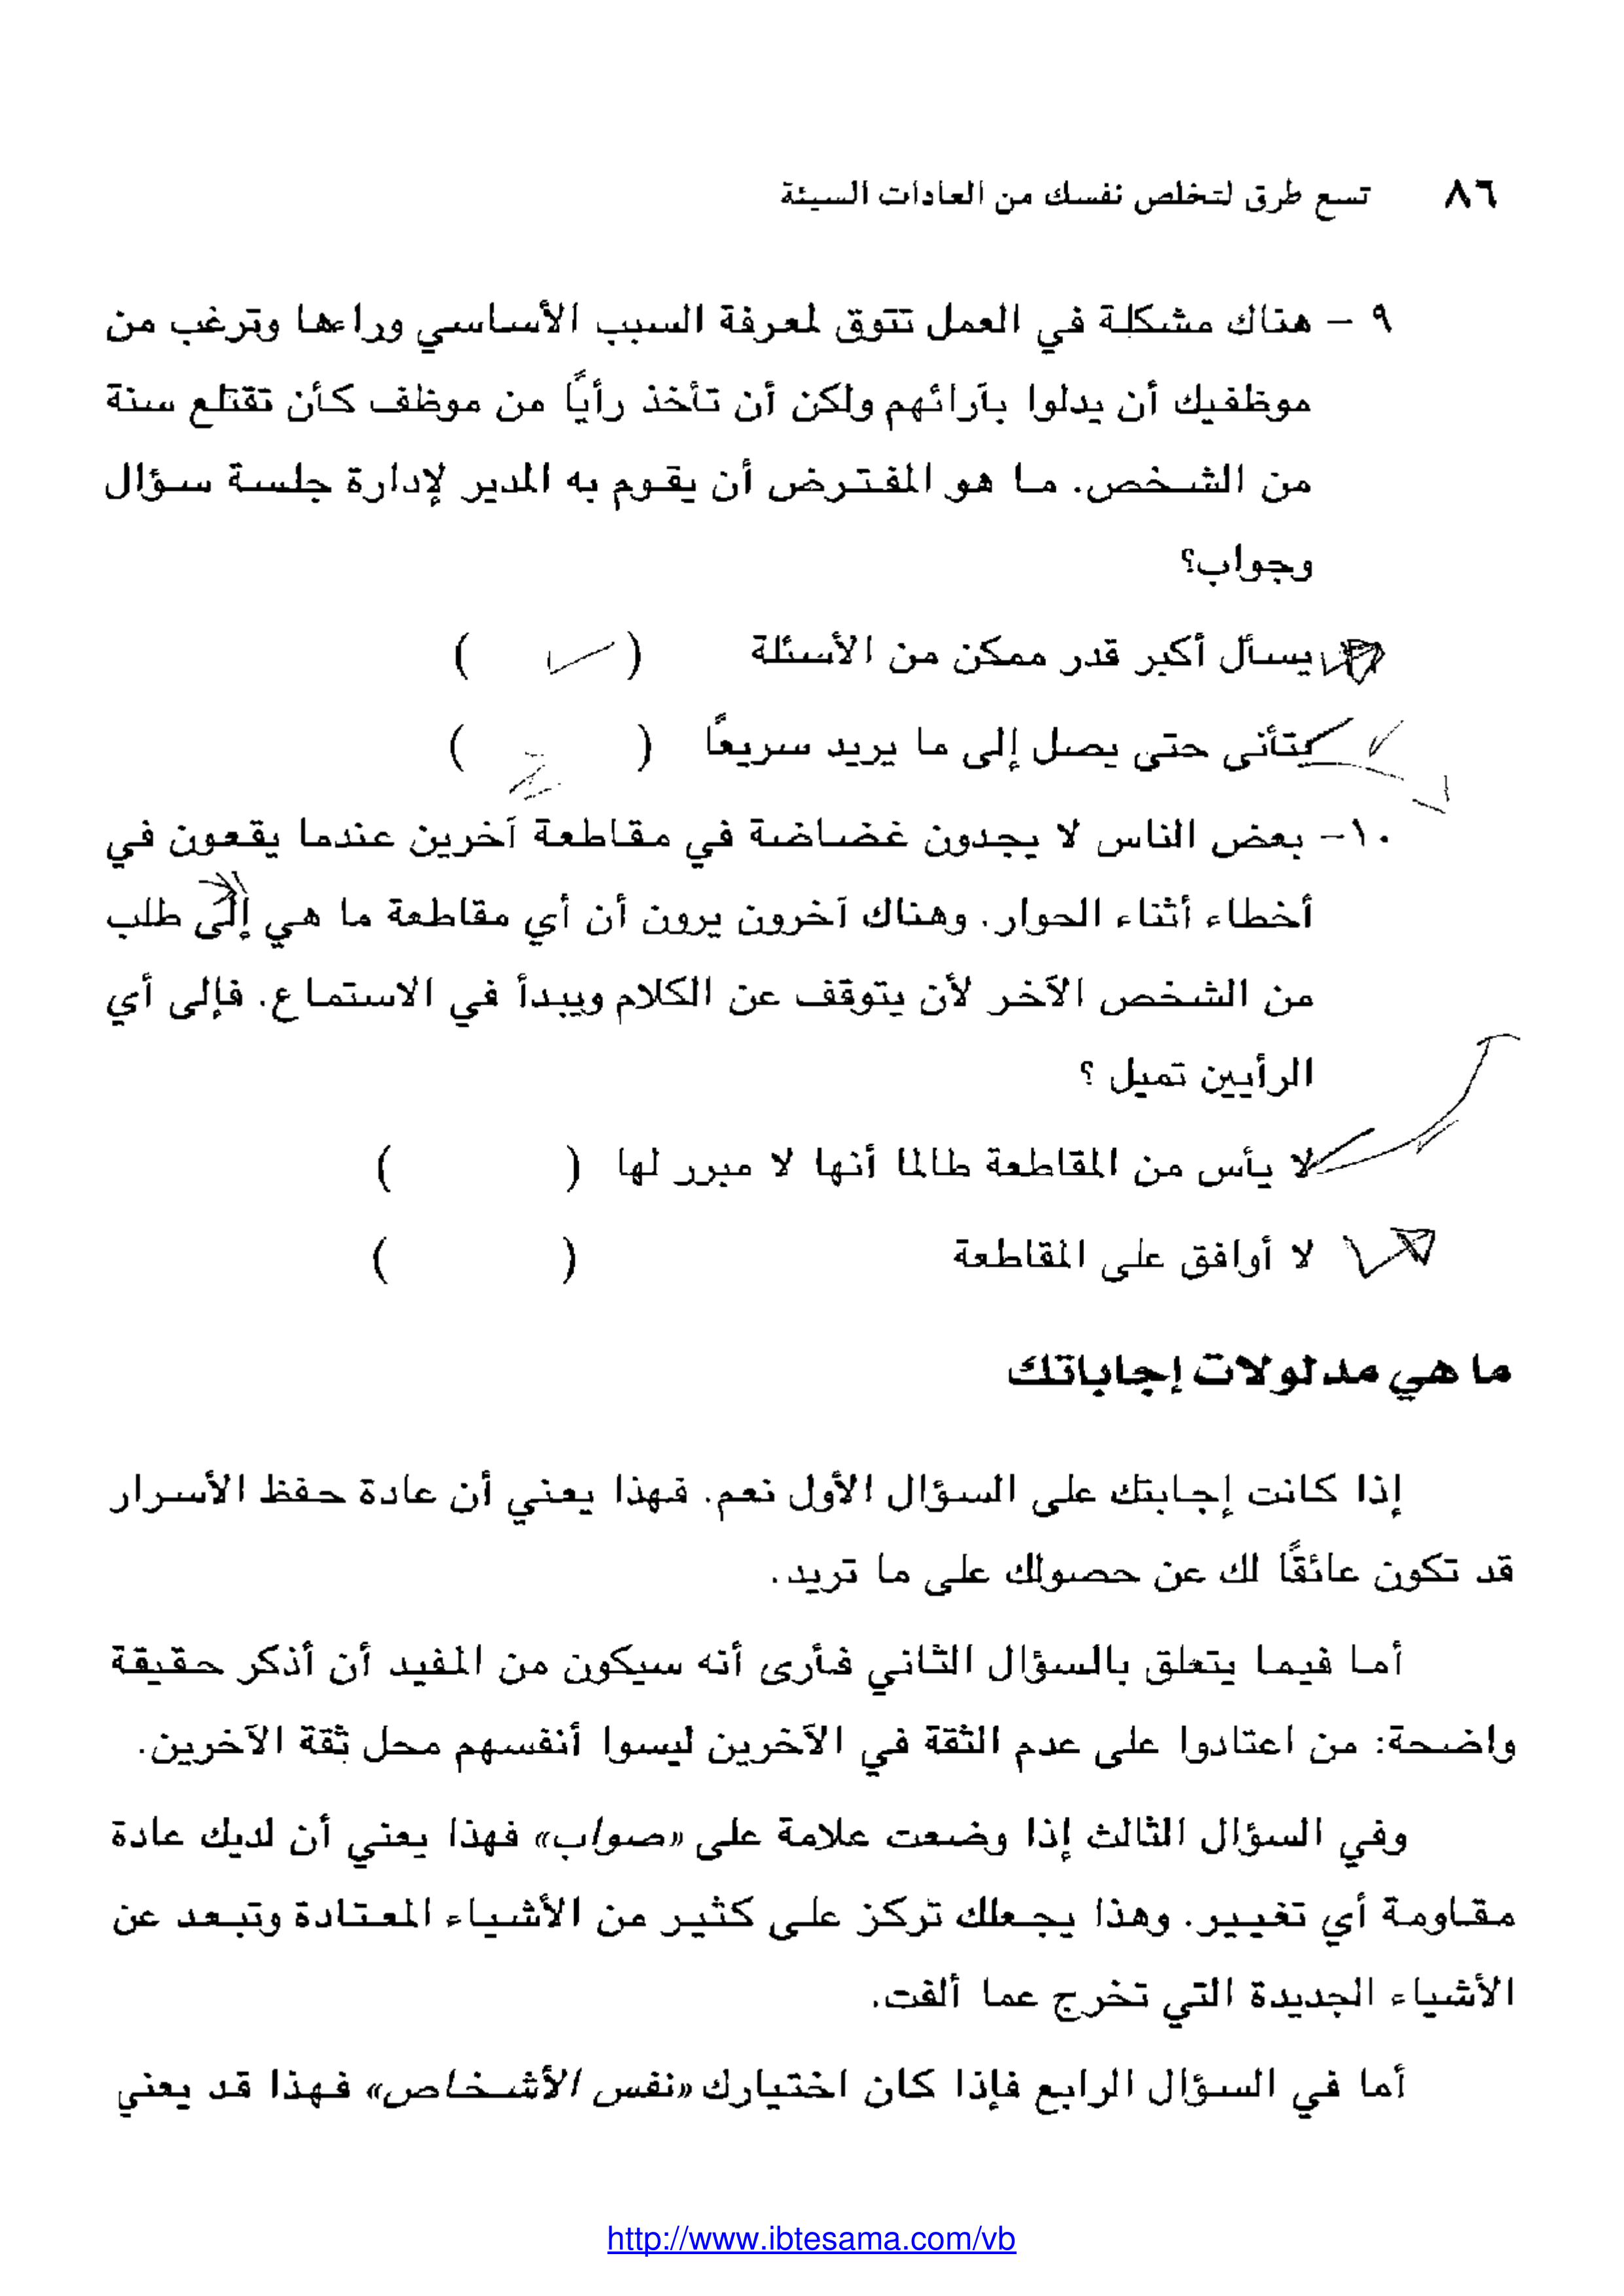 ٨٦ تسع طرق لتخلص نفسك من العادات السيئة
٩ – هناك مشكلة في العمل تتوق لمعرفة السبب الأساسي وراءها وترغب من
موظفيك أن يدلوا بآرائهم ولكن أن تأخذ رأيًا من موظف كأن تقتلع سنة
من الشخص. ما هو المفترض أن يقوم به المدير لإدارة جلسة سؤال
وجواب؟
يسأل أكبر قدر ممكن من الأسئلة ( ✓ )
يتأنى حتى يصل إلى ما يريد سريعاً ( )
١٠– بعض الناس لا يجدون غضاضة في مقاطعة آخرين عندما يقعون في
أخطاء أثناء الحوار. وهناك آخرون يرون أن أي مقاطعة ما هي إلى طلب
من الشخص الآخر لأن يتوقف عن الكلام ويبدأ في الاستماع. فإلى أي
الرأيين تميل ؟
لا يأس من المقاطعة طالما أنها لا مبرر لها ( )
لا أوافق على المقاطعة ( )
ما هي مدلولات إجاباتك
إذا كانت إجابتك على السؤال الأول نعم. فهذا يعني أن عادة حفظ الأسرار
قد تكون عائقًا لك عن حصولك على ما تريد.
أما فيما يتعلق بالسؤال الثاني فأرى أنه سيكون من المفيد أن أذكر حقيقة
واضحة: من اعتادوا على عدم الثقة في الآخرين ليسوا أنفسهم محل ثقة الآخرين.
وفي السؤال الثالث إذا وضعت علامة على «صواب» فهذا يعني أن لديك عادة
مقاومة أي تغيير. وهذا يجعلك تركز على كثير من الأشياء المعتادة وتبعد عن
الأشياء الجديدة التي تخرج عما ألفت.
أما في السؤال الرابع فإذا كان اختيارك «نفس الأشخاص» فهذا قد يعني
http://www.ibtesama.com/vb